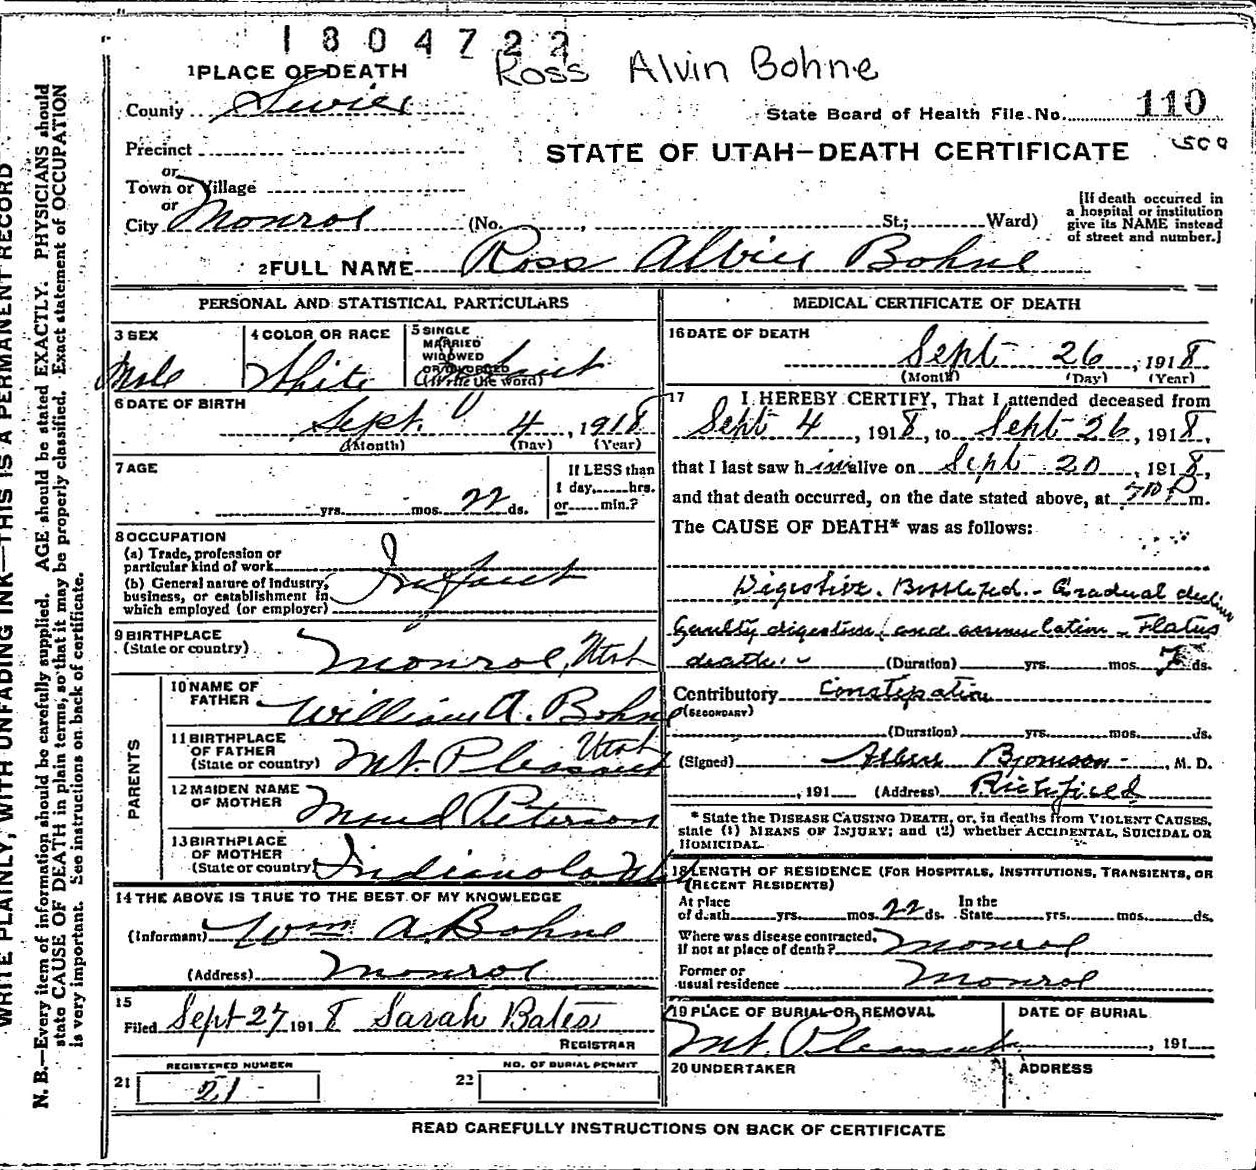 1804722
Ross Alvin Bohne
1 PLACE OF DEATH
County Sevier
State Board of Health File No. 110
Precinct
STATE OF UTAH—DEATH CERTIFICATE
or
Town or Village
or
City Monroe (No. , St.; Ward)
[If death occurred in
a hospital or institution
give its NAME instead
of street and number.]
2 FULL NAME Ross Alvin Bohne
PERSONAL AND STATISTICAL PARTICULARS
3 SEX
Male
4 COLOR OR RACE
White
5 SINGLE
MARRIED
WIDOWED
OR DIVORCED
(Write the word)
Infant
6 DATE OF BIRTH
Sept. 4, 1918
(Month) (Day) (Year)
7 AGE
If LESS than
1 day, hrs.
or min.?
yrs. mos. 22 ds.
8 OCCUPATION
(a) Trade, profession or
particular kind of work
(b) General nature of Industry,
business, or establishment in
which employed (or employer)
Infant
9 BIRTHPLACE
(State or country)
Monroe, Utah
PARENTS
10 NAME OF
FATHER
William A. Bohne
11 BIRTHPLACE
OF FATHER
(State or country)
Mt. Pleasant Utah
12 MAIDEN NAME
OF MOTHER
Maud Peterson
13 BIRTHPLACE
OF MOTHER
(State or country)
Indianola Utah
14 THE ABOVE IS TRUE TO THE BEST OF MY KNOWLEDGE
(Informant) Wm A. Bohne
(Address) Monroe
15
Filed Sept 27 1918 Sarah Bates
REGISTRAR
REGISTERED NUMBER
21 21
NO. OF BURIAL PERMIT
22
MEDICAL CERTIFICATE OF DEATH
16 DATE OF DEATH
Sept 26, 1918
(Month) (Day) (Year)
17 I HEREBY CERTIFY, That I attended deceased from
Sept 4, 1918, to Sept 26, 1918,
that I last saw him alive on Sept 20, 1918,
and that death occurred, on the date stated above, at P m.
The CAUSE OF DEATH* was as follows:
Digestive. Bottle fed - Gradual decline
faulty digestion and assimilation - Flatus
death. - (Duration) yrs. mos. 7 ds.
Contributory Constipation
(SECONDARY)
(Duration) yrs. mos. ds.
(Signed) M. D.
, 191 (Address) Richfield
* State the DISEASE CAUSING DEATH, or, in deaths from VIOLENT CAUSES,
state (1) MEANS OF INJURY; and (2) whether ACCIDENTAL, SUICIDAL OR
HOMICIDAL.
18 LENGTH OF RESIDENCE (FOR HOSPITALS, INSTITUTIONS, TRANSIENTS, OR
RECENT RESIDENTS)
At place
of death yrs. mos. 22 ds.
In the
State yrs. mos. ds.
Where was disease contracted,
if not at place of death? Monroe
Former or
usual residence Monroe
19 PLACE OF BURIAL OR REMOVAL
Mt. Pleasant
DATE OF BURIAL
, 191
20 UNDERTAKER
ADDRESS
READ CAREFULLY INSTRUCTIONS ON BACK OF CERTIFICATE
WRITE PLAINLY, WITH UNFADING INK—THIS IS A PERMANENT RECORD
N. B.—Every item of information should be carefully supplied. AGE should be stated EXACTLY. PHYSICIANS should
state CAUSE OF DEATH in plain terms, so that it may be properly classified. Exact statement of OCCUPATION
is very important. See instructions on back of certificate.